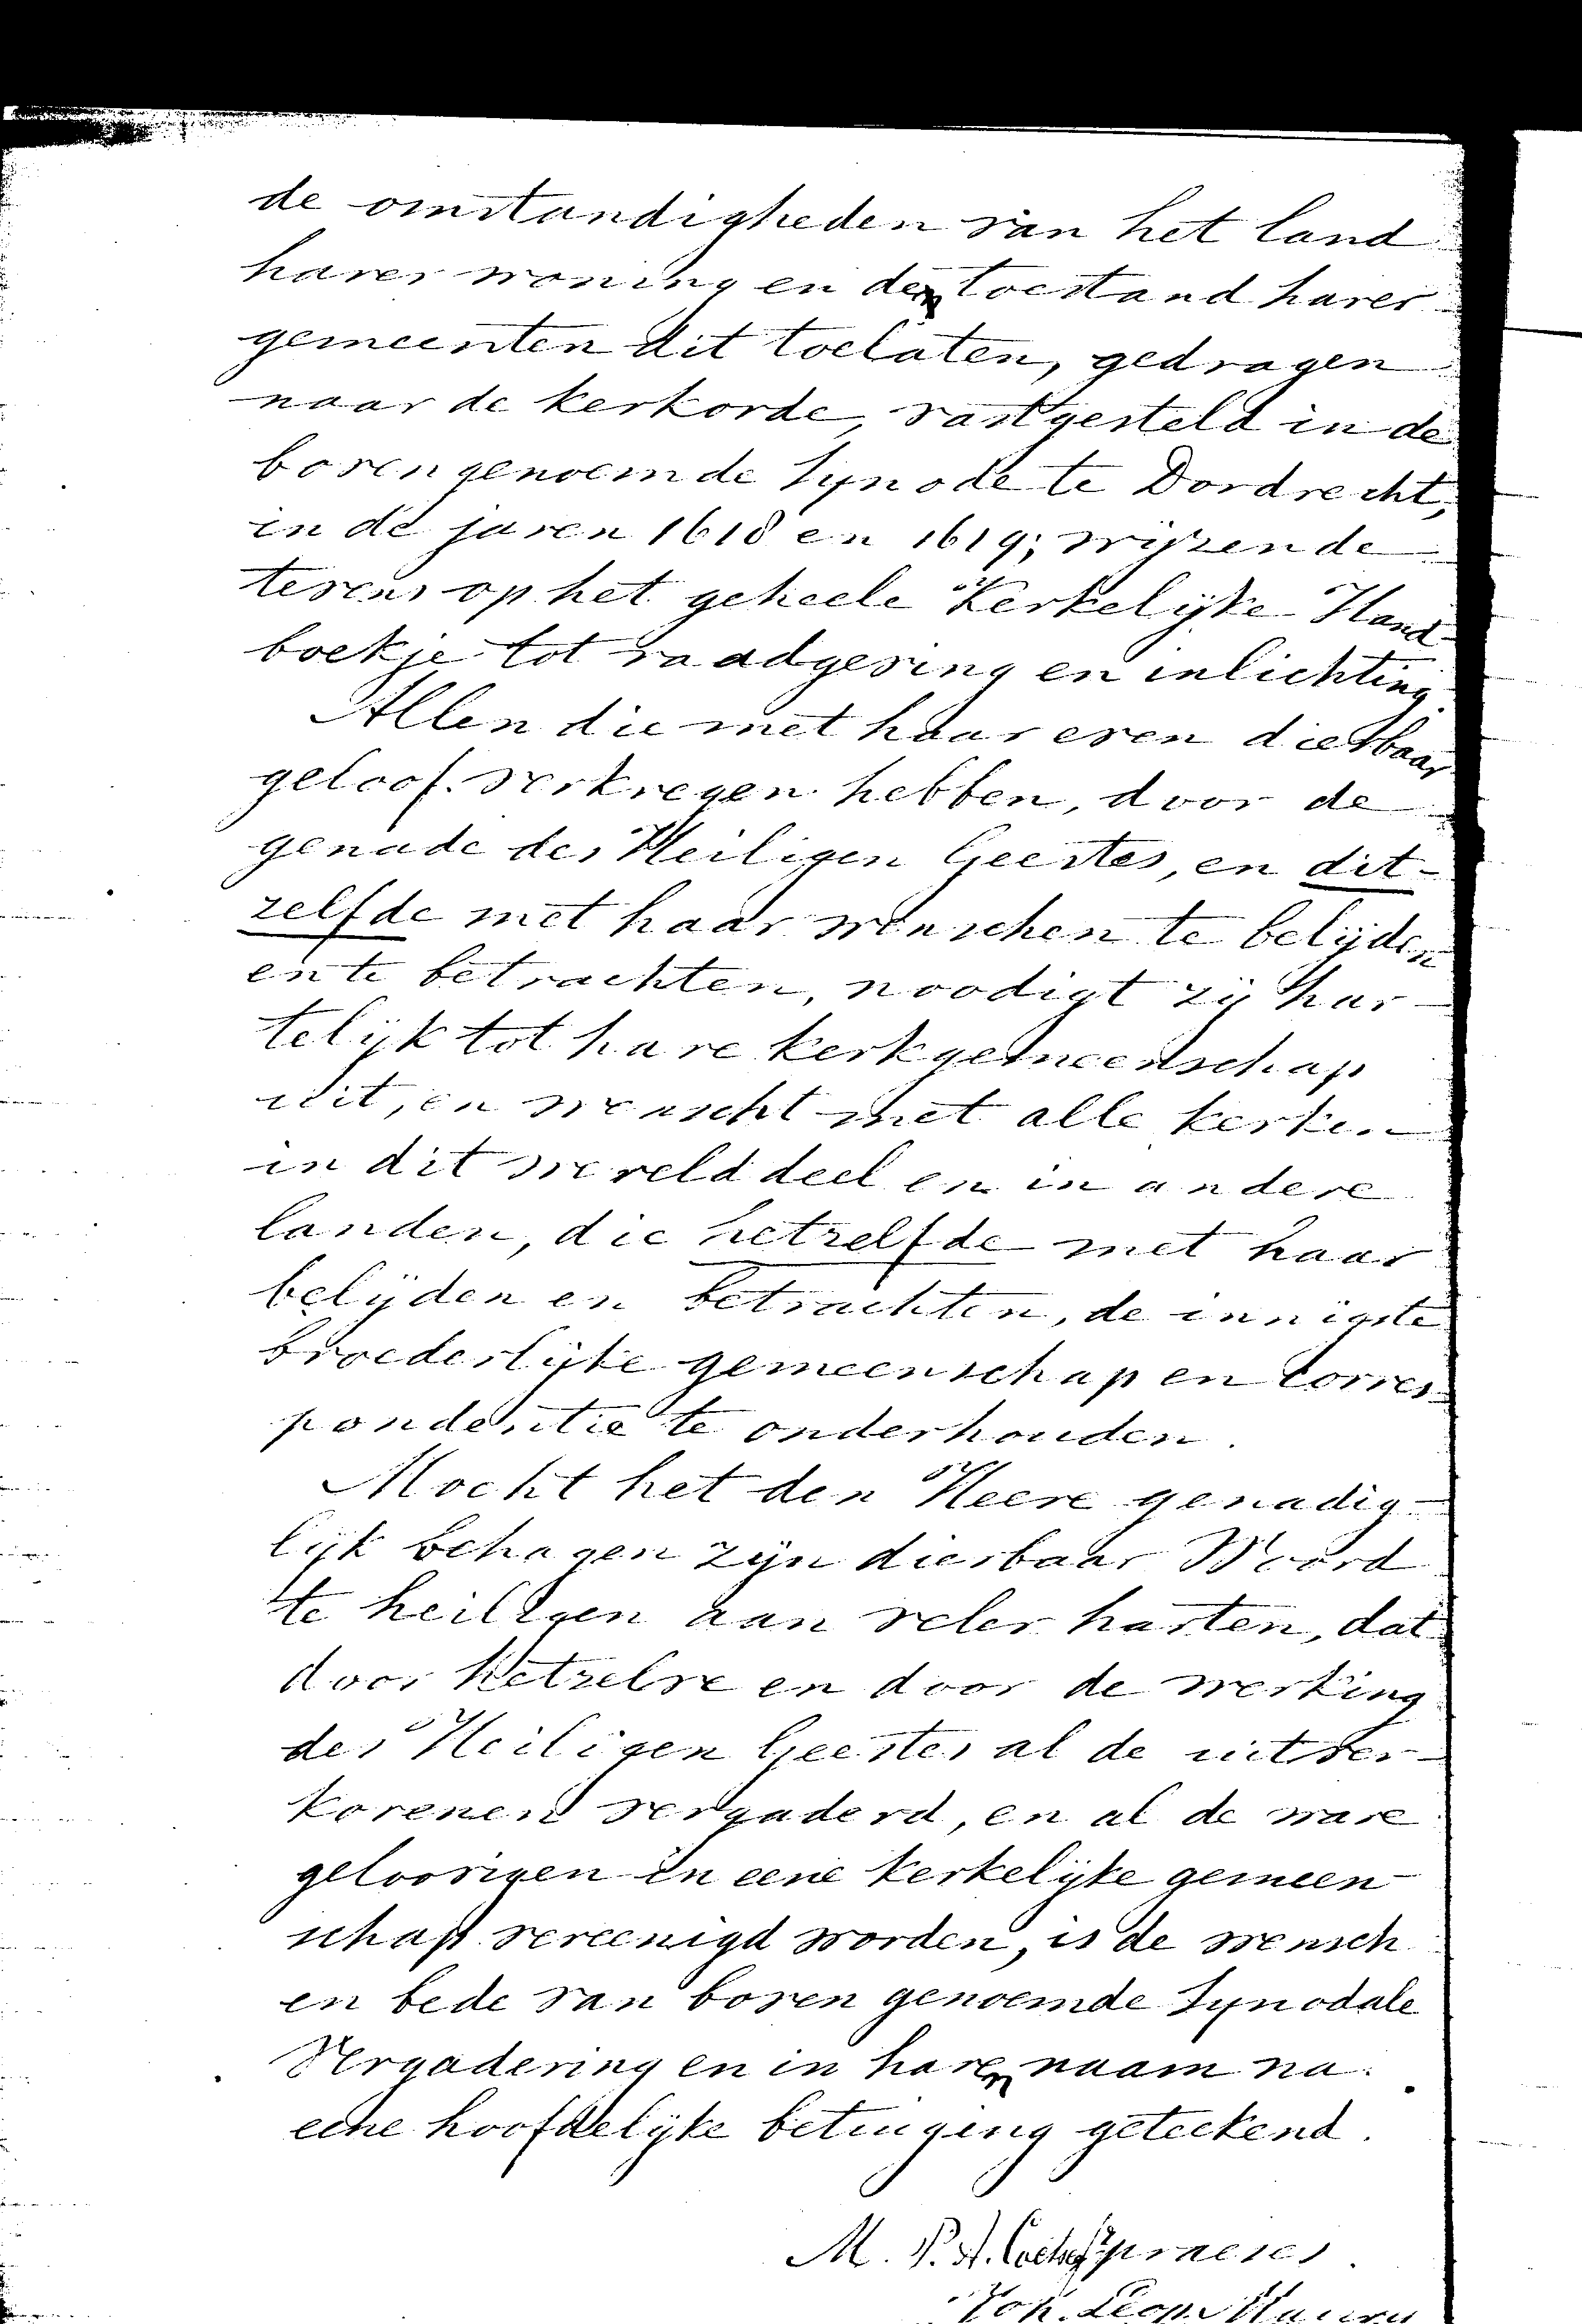 de omstandigheden van het land
harer woning en den toestand harer
gemeenten dit toelaten, gedragen
naar de kerkorde, vastgesteld in de
bovengenoemde Synode te Dordrecht,
in de jaren 1618 en 1619; wijzende
tevens op het geheele Kerkelijke Hand-
boekje tot raadgeving en inlichting.
Allen die met haar even dierbaar
geloof verkregen hebben, door de
genade des Heiligen Geestes, en dit-
zelfde met haar wenschen te belijden
en te betrachten, noodigt zij har-
telijk tot hare kerkgemeenschap
uit, en wenscht met alle kerken
in dit werelddeel en in andere
landen, die hetzelfde met haar
belijden en betrachten, de innigste
broederlijke gemeenschap en corres-
pondentie te onderhouden.
Mocht het den Heere genadig-
lijk behagen zijn dierbaar Woord
te heiligen aan veler harten, dat
door hetzelve en door de werking
des Heiligen Geestes al de uitver-
korenen vergaderd, en al de ware
geloovigen in eene kerkelijke gemeen-
schap vereenigd worden, is de wensch
en bede van boven genoemde Synodale
Vergadering en in haren naam na
eene hoofdelijke betuiging geteekend.
M. P. A. Coetsee praeses.
Joh. Leop. Maury